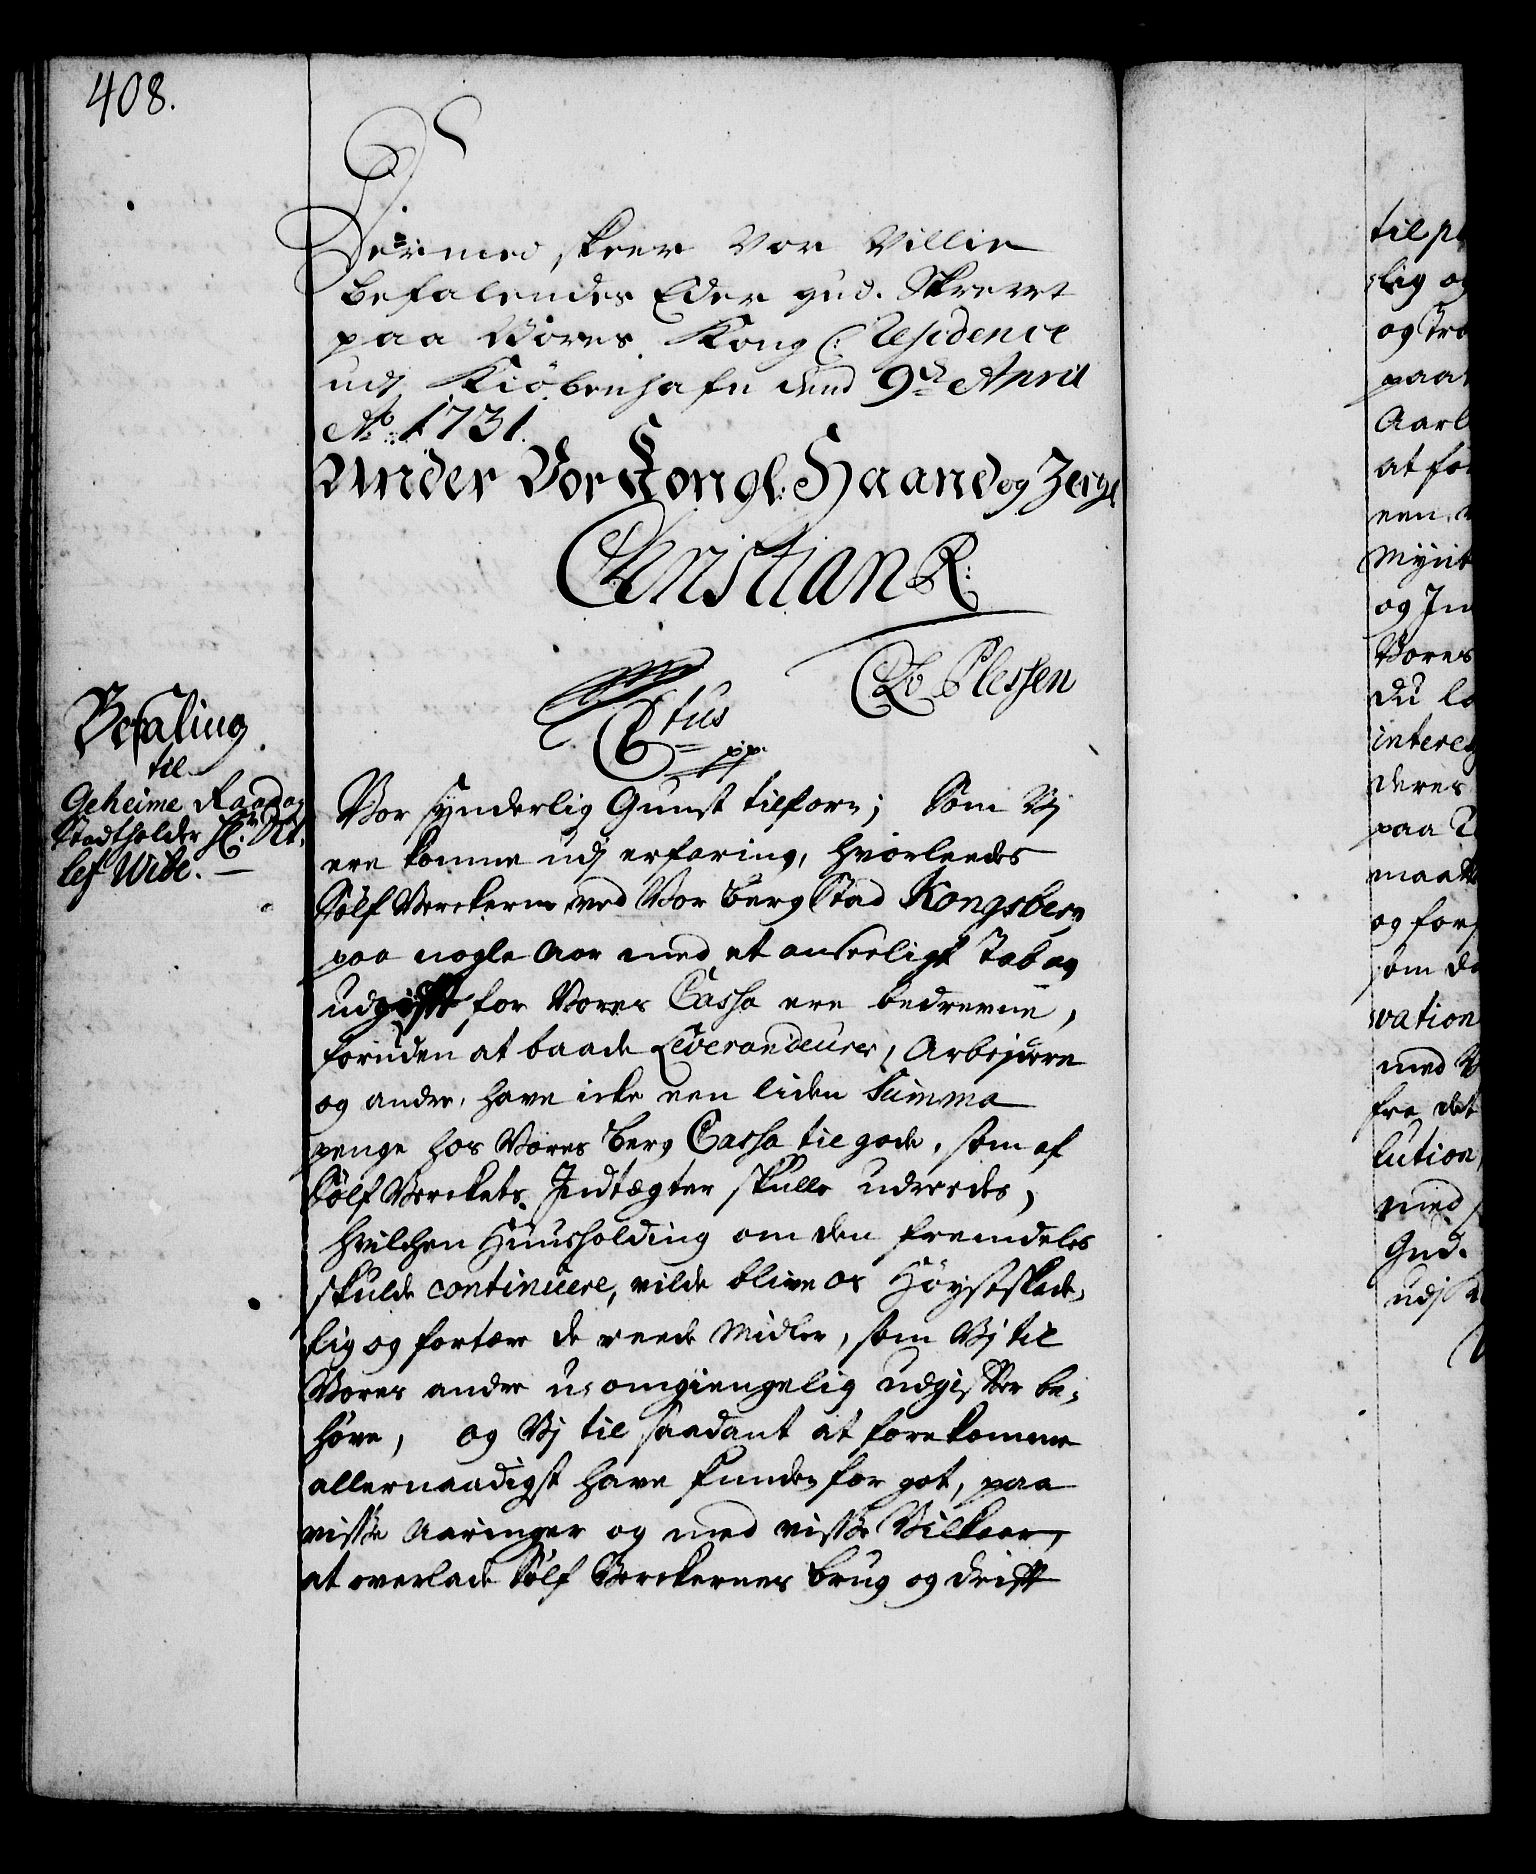 408.
Dermed skeer Vor Villie
befalendes Eder gud. Skrevet
paa Vores Kongl: Residence
udj Kiöbenhafn dend 9de April
Ao: 1731.
Under Vor Kongl: Haand og Zeigl
Christian R:
CAv Plessen
Befaling
til
Geheime Raad og
Stadtholder Hr: Dit,
lef Wibe. —
Ctus
pp.
Vor synderlig Gunst tilforn; Som Vj
ere komne udj erfaring, hvorleedes
Sölf Verckerne ved Vor Berg Stad Kongsberg
paa nogle Aar med et anseeligt Tab og
udgift for Vores Cassa ere bedrevne,
foruden at baade Leverandeurer, Arbejdere
og andre, have icke een liden Summa
penge hos Vores Berg Cassa til gode, som af
Sölf Verckets Indtægter skulle udreedes,
hvilchen Huusholding om den fremdeles
skulde continuere, vilde blive os Höystskade,
lig og fortære de reede Midler, som Vj til
Vores andre u,omgiengelig udgifter be,
höve, og Vj til saadant at forekomme
allernaadigst have funden for got, paa
visse Aaringer og med visse Vilkaar,
at overlade Sölf Verckernes brug og drift
til p
slig og
og Tro
paa
Aarl
at fo
een
Mynt
og In
Vores
du la
interes
deres
paa
maatte
og for
om
vation
med V
fra det
lution
med
Gud.
udj